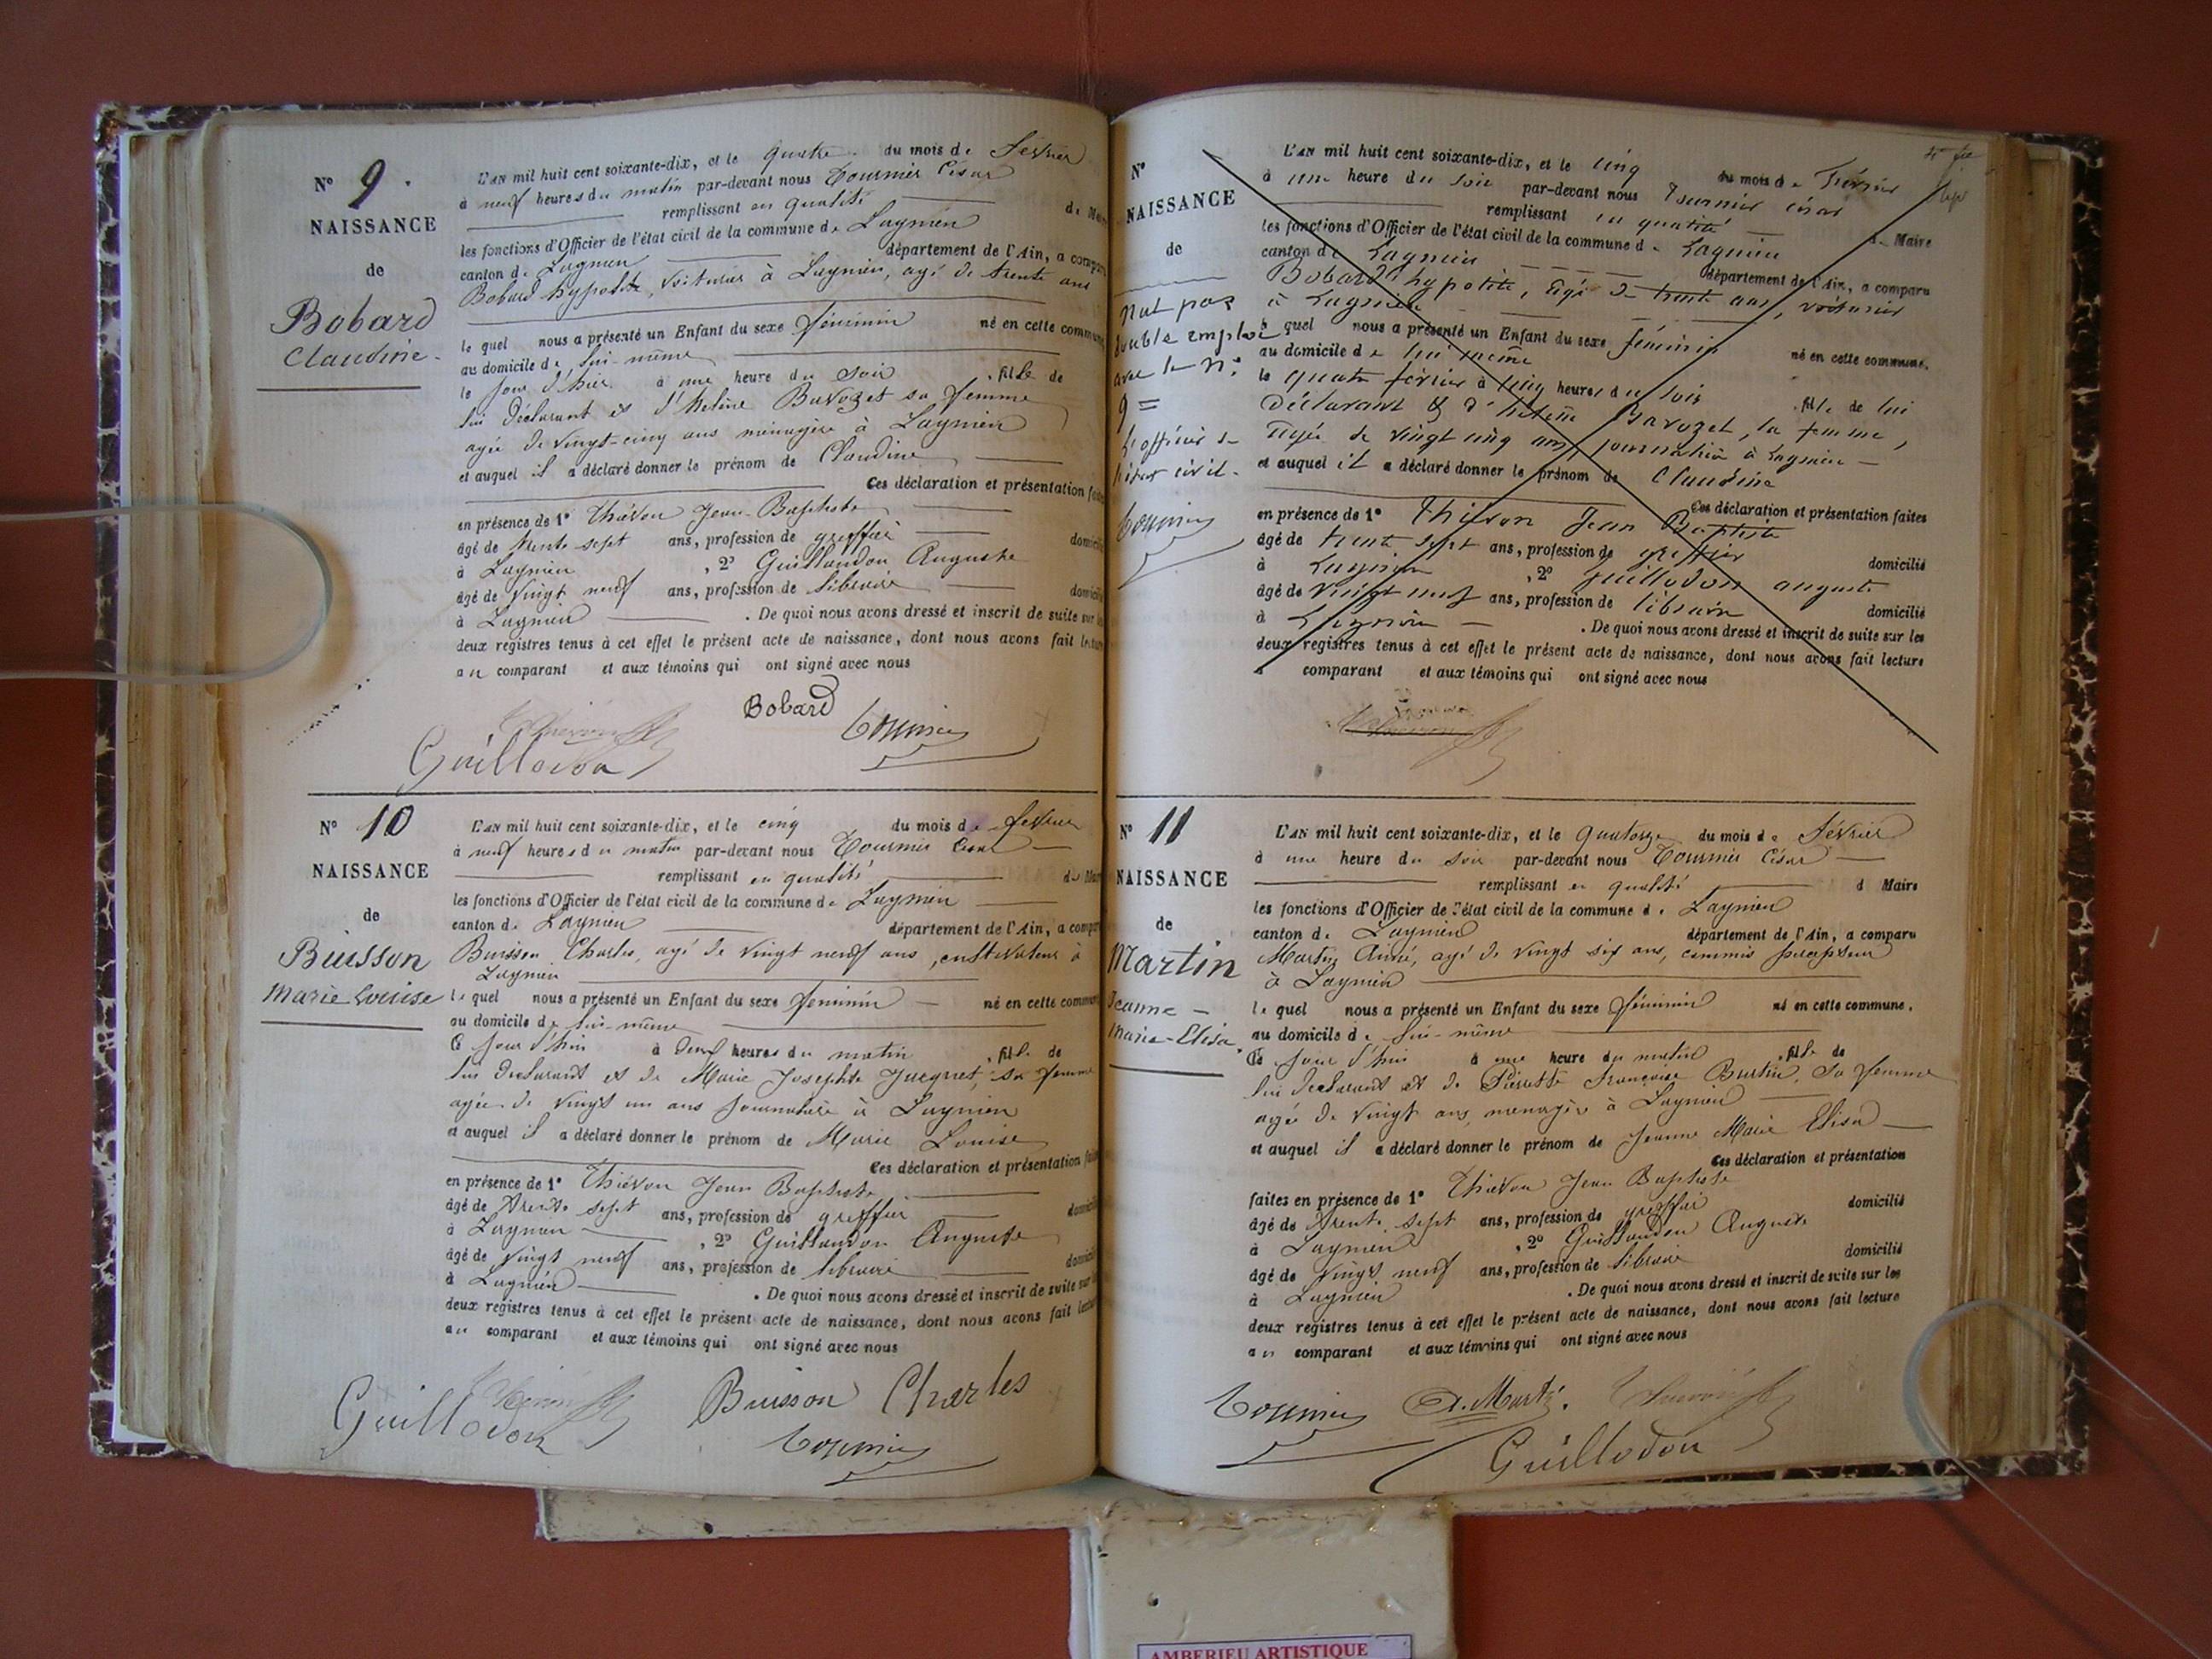 N° 9.
NAISSANCE
de
Bobard
Claudine.
L'AN mil huit cent soixante-dix, et le quatre du mois de février
à neuf heures du matin par-devant nous Tournier César
remplissant en qualité de
les fonctions d'Officier de l'état civil de la commune de Lagnieu
canton de Lagnieu département de l'Ain, a
Bobard hypolite, voiturier à Lagnieu, agé de trente ans
le quel nous a présenté un Enfant du sexe féminin né en cette
au domicile de lui-même
le jour d'hier à une heure du soir , fille de
lui déclarant et d'helène Bavozet sa femme
agée de vingt-cinq ans ménagère à Lagnieu
et auquel il a déclaré donner le prénom de Claudine
Ces déclaration et présentation
en présence de 1° Thiévon Jean-Baptiste
âgé de trente sept ans, profession de greffier
à Lagnieu , 2° Guillaudon Auguste
âgé de vingt neuf ans, profession de libraire
à Lagnieu . De quoi nous avons dressé et inscrit de suite sur
deux registres tenus à cet effet le présent acte de naissance, dont nous avons fait
au comparant et aux témoins qui ont signé avec nous
Bobard
Guillodon
N° 10
NAISSANCE
de
Buisson
Marie Louise
L'AN mil huit cent soixante-dix, et le cinq du mois de février
à neuf heures du matin par-devant nous Tournier César
remplissant en qualité
les fonctions d'Officier de l'état civil de la commune de Lagnieu
canton de Lagnieu département de l'Ain, a
Buisson Charles, agé de vingt neuf ans, cultivateur à
Lagnieu
le quel nous a présenté un Enfant du sexe féminin né en cette
au domicile de lui-même
jour d'hier à deux heures du matin , fille de
lui déclarant et de Marie Josephte Jacquet, sa femme
agée de vingt un ans journalière à Lagnieu
et auquel il a déclaré donner le prénom de Marie Louise
Ces déclaration et présentation
en présence de 1° Thiévon Jean Baptiste
âgé de trente sept ans, profession de greffier
à Lagnieu , 2° Guillaudon Auguste
âgé de vingt neuf ans, profession de libraire
à Lagnieu . De quoi nous avons dressé et inscrit de suite sur
deux registres tenus à cet effet le présent acte de naissance, dont nous avons fait
au comparant et aux témoins qui ont signé avec nous
Guillodon
Buisson Charles
N°
NAISSANCE
de
Nul pas
double emploi
avec le n°
9 =
L'officier de
l'état civil.
L'AN mil huit cent soixante-dix, et le cinq du mois de février
à une heure du soir par-devant nous Tournier césar
remplissant en qualité de Maire
les fonctions d'Officier de l'état civil de la commune de Lagnieu
canton de Lagnieu département de l'Ain, a comparu
Bobard hypolite, âgé de trente ans, voiturier
à Lagnieu
le quel nous a présenté un Enfant du sexe féminin né en cette commune.
au domicile de lui même
le quatre février à cinq heures du soir , fille de lui
déclarant & d'helène Bavozet, sa femme,
âgée de vingt cinq ans, journalière à Lagnieu
et auquel il a déclaré donner le prénom de Claudine
Ces déclaration et présentation faites
en présence de 1° Thiévon Jean Baptiste
âgé de trente sept ans, profession de greffier domicilié
à Lagnieu , 2° guillodon auguste
âgé de vingt neuf ans, profession de libraire domicilié
à Lagnieu . De quoi nous avons dressé et inscrit de suite sur les
deux registres tenus à cet effet le présent acte de naissance, dont nous avons fait lecture
comparant et aux témoins qui ont signé avec nous
N° 11
NAISSANCE
de
Martin
Jeanne-
Marie-Elisa.
L'AN mil huit cent soixante-dix, et le quatorze du mois de février
à une heure du soir par-devant nous Tournier César
remplissant en qualité d Maire
les fonctions d'Officier de l'état civil de la commune de Lagnieu
canton de Lagnieu département de l'Ain, a comparu
Martin André, agé de vingt six ans, commis percepteur
à Lagnieu
le quel nous a présenté un Enfant du sexe féminin né en cette commune.
au domicile de lui-même
jour d'hier à une heure du matin , fille de
lui déclarant et de Pierrette françoise Burtin, sa femme
agée de vingt ans, menagère à Lagnieu
et auquel il a déclaré donner le prénom de Jeanne Marie Elisa
Ces déclaration et présentation
faites en présence de 1° Thiévon Jean Baptiste
âgé de trente sept ans, profession de greffier domicilié
à Lagnieu , 2° Guillaudon Auguste
âgé de vingt neuf ans, profession de libraire domicilié
à Lagnieu . De quoi nous avons dressé et inscrit de suite sur les
deux registres tenus à cet effet le présent acte de naissance, dont nous avons fait lecture
au comparant et aux témoins qui ont signé avec nous
A. Martin.
Guillodon
AMBERIEU ARTISTIQUE